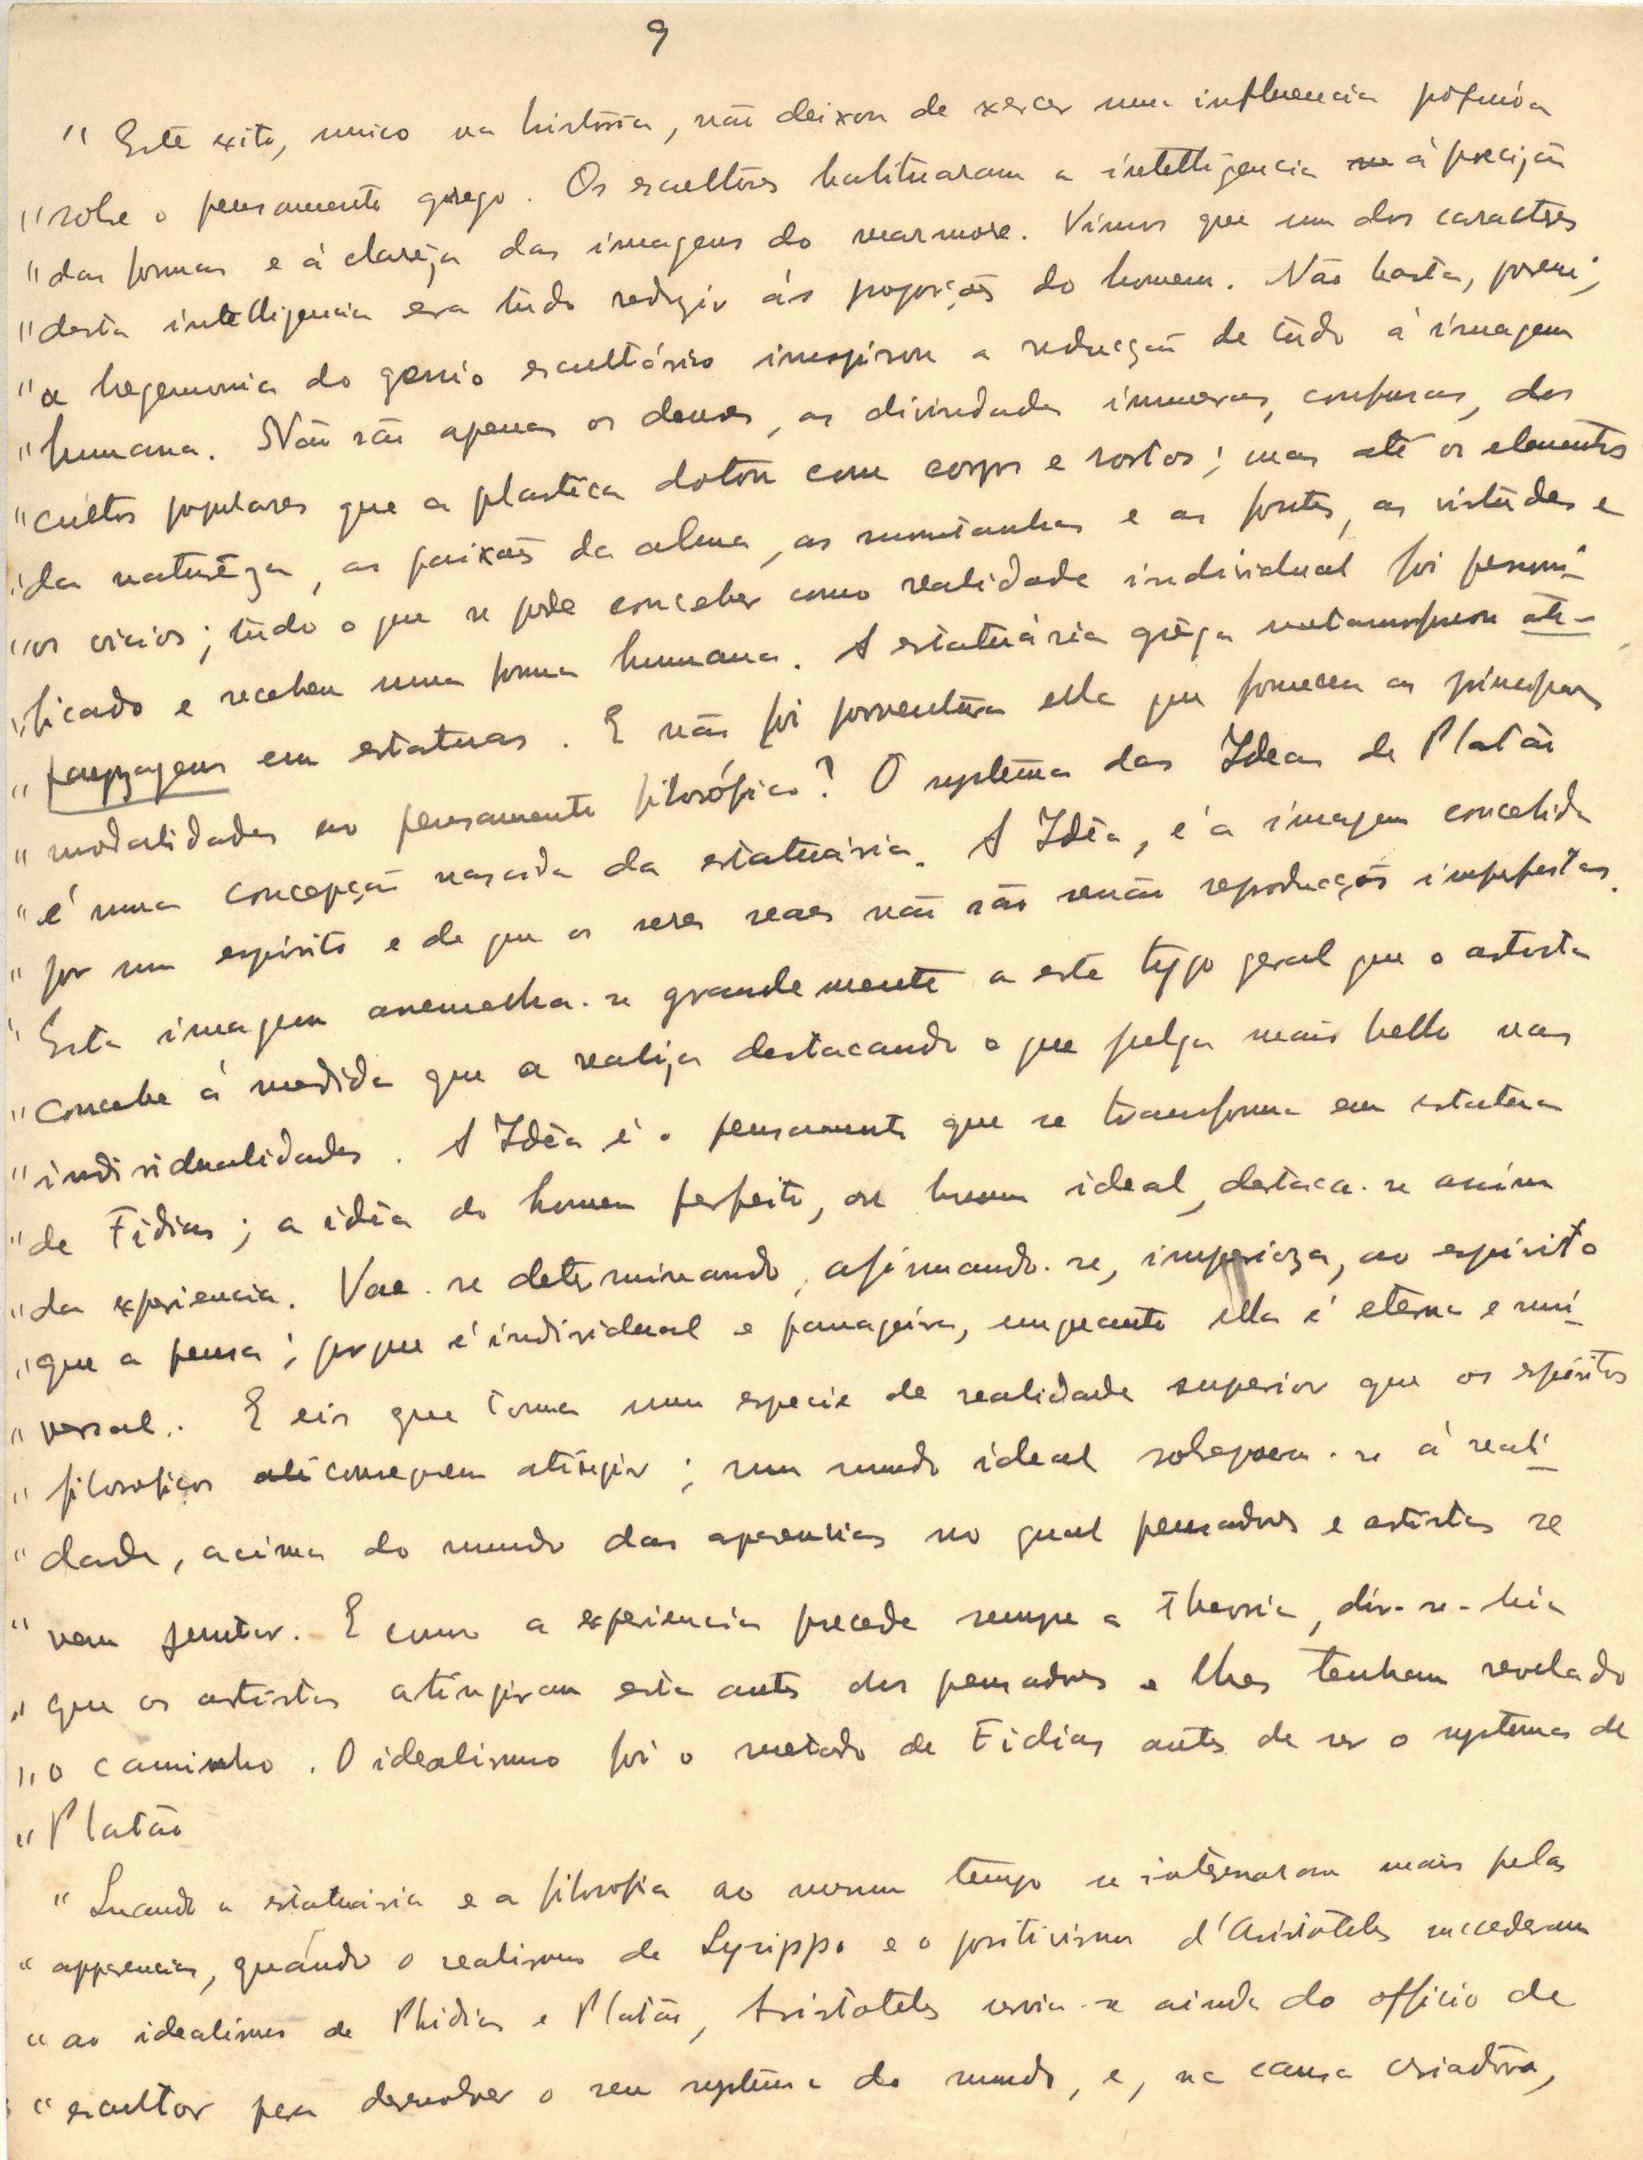 9
" Este exito, unico na história, não deixou de exercer uma influencia pófunda
" sobre o pensamento grego. Os escultores habituaram a intelligencia á precizão
" das formas e á clarêza das imagens do marmore. Vimos que um dos caractéres
" desta intelligencia era tudo reduzir ás proporções do homem. Não basta, porem;
" a hegemonia do genio escultórico inspirou a reducção de tudo á imagem
" humana. Não são apenas os deuses, as divindades inumeras, confusas, dos
" cultos populares que a plastica dotou com corpos e rostos; mas até os elementos
" da naturêza, as paixões da alma, as montanhas e as fontes, as virtudes e
" os vicios; tudo o que se pode conceber como realidade individual foi personi-
" ficado e recebeu uma forma humana. A estatuária grêga metamorfoseou até
" payzagens em estatuas. E não foi porventura ella que forneceu as principaes
" modalidades ao pensamento filosófico? O systema das Ideas de Platão
" é uma concepção nascida da estatuária. A Idêa, é a imagem concebida
" por um espirito e de que os seres reaes não são senão reproducções imperfeitas.
" Esta imagem assemelha-se grandemente a este typo geral que o artista
" concebe á medida que a realiza destacando o que julga mais bello nas
" individualidades. A Idêa é o pensamento que se transforma em estatua
" de Fidias; a idêa do homem perfeito, ou homem ideal, destaca-se assim
" da experiencia. Vae-se determinando, afirmando-se, imperioza, ao espirito
" que a pensa; porque é individual e passageiro, emquanto ella é eterna e uni-
" versal. E eis que toma uma especie de realidade superior que os espiritos
" filosoficos conseguem atingir; um mundo ideal sobrepoem-se á reali-
" dade, acima do mundo das aparencias no qual pensadores e artistas se
" vem juntar. E como a experiencia precede sempre a theoria, dir-se-hia
" que os artistas atingiram esta antes dos pensadores e lhes tenham revelado
" o caminho. O idealismo foi o metodo de Fidias antes de ser o systema de
" Platão
" Quando a estatuária e a filosofia ao mesmo tempo se internaram mais pelas
" apparencias, quando o realismo de Lysippo e o positivismo d'Aristoteles succederam
" ao idealismo de Phidias e Platão, Aristoteles servia-se ainda do officio de
" escultor para desenvolver o seu systema do mundo, e, na causa criadôra,